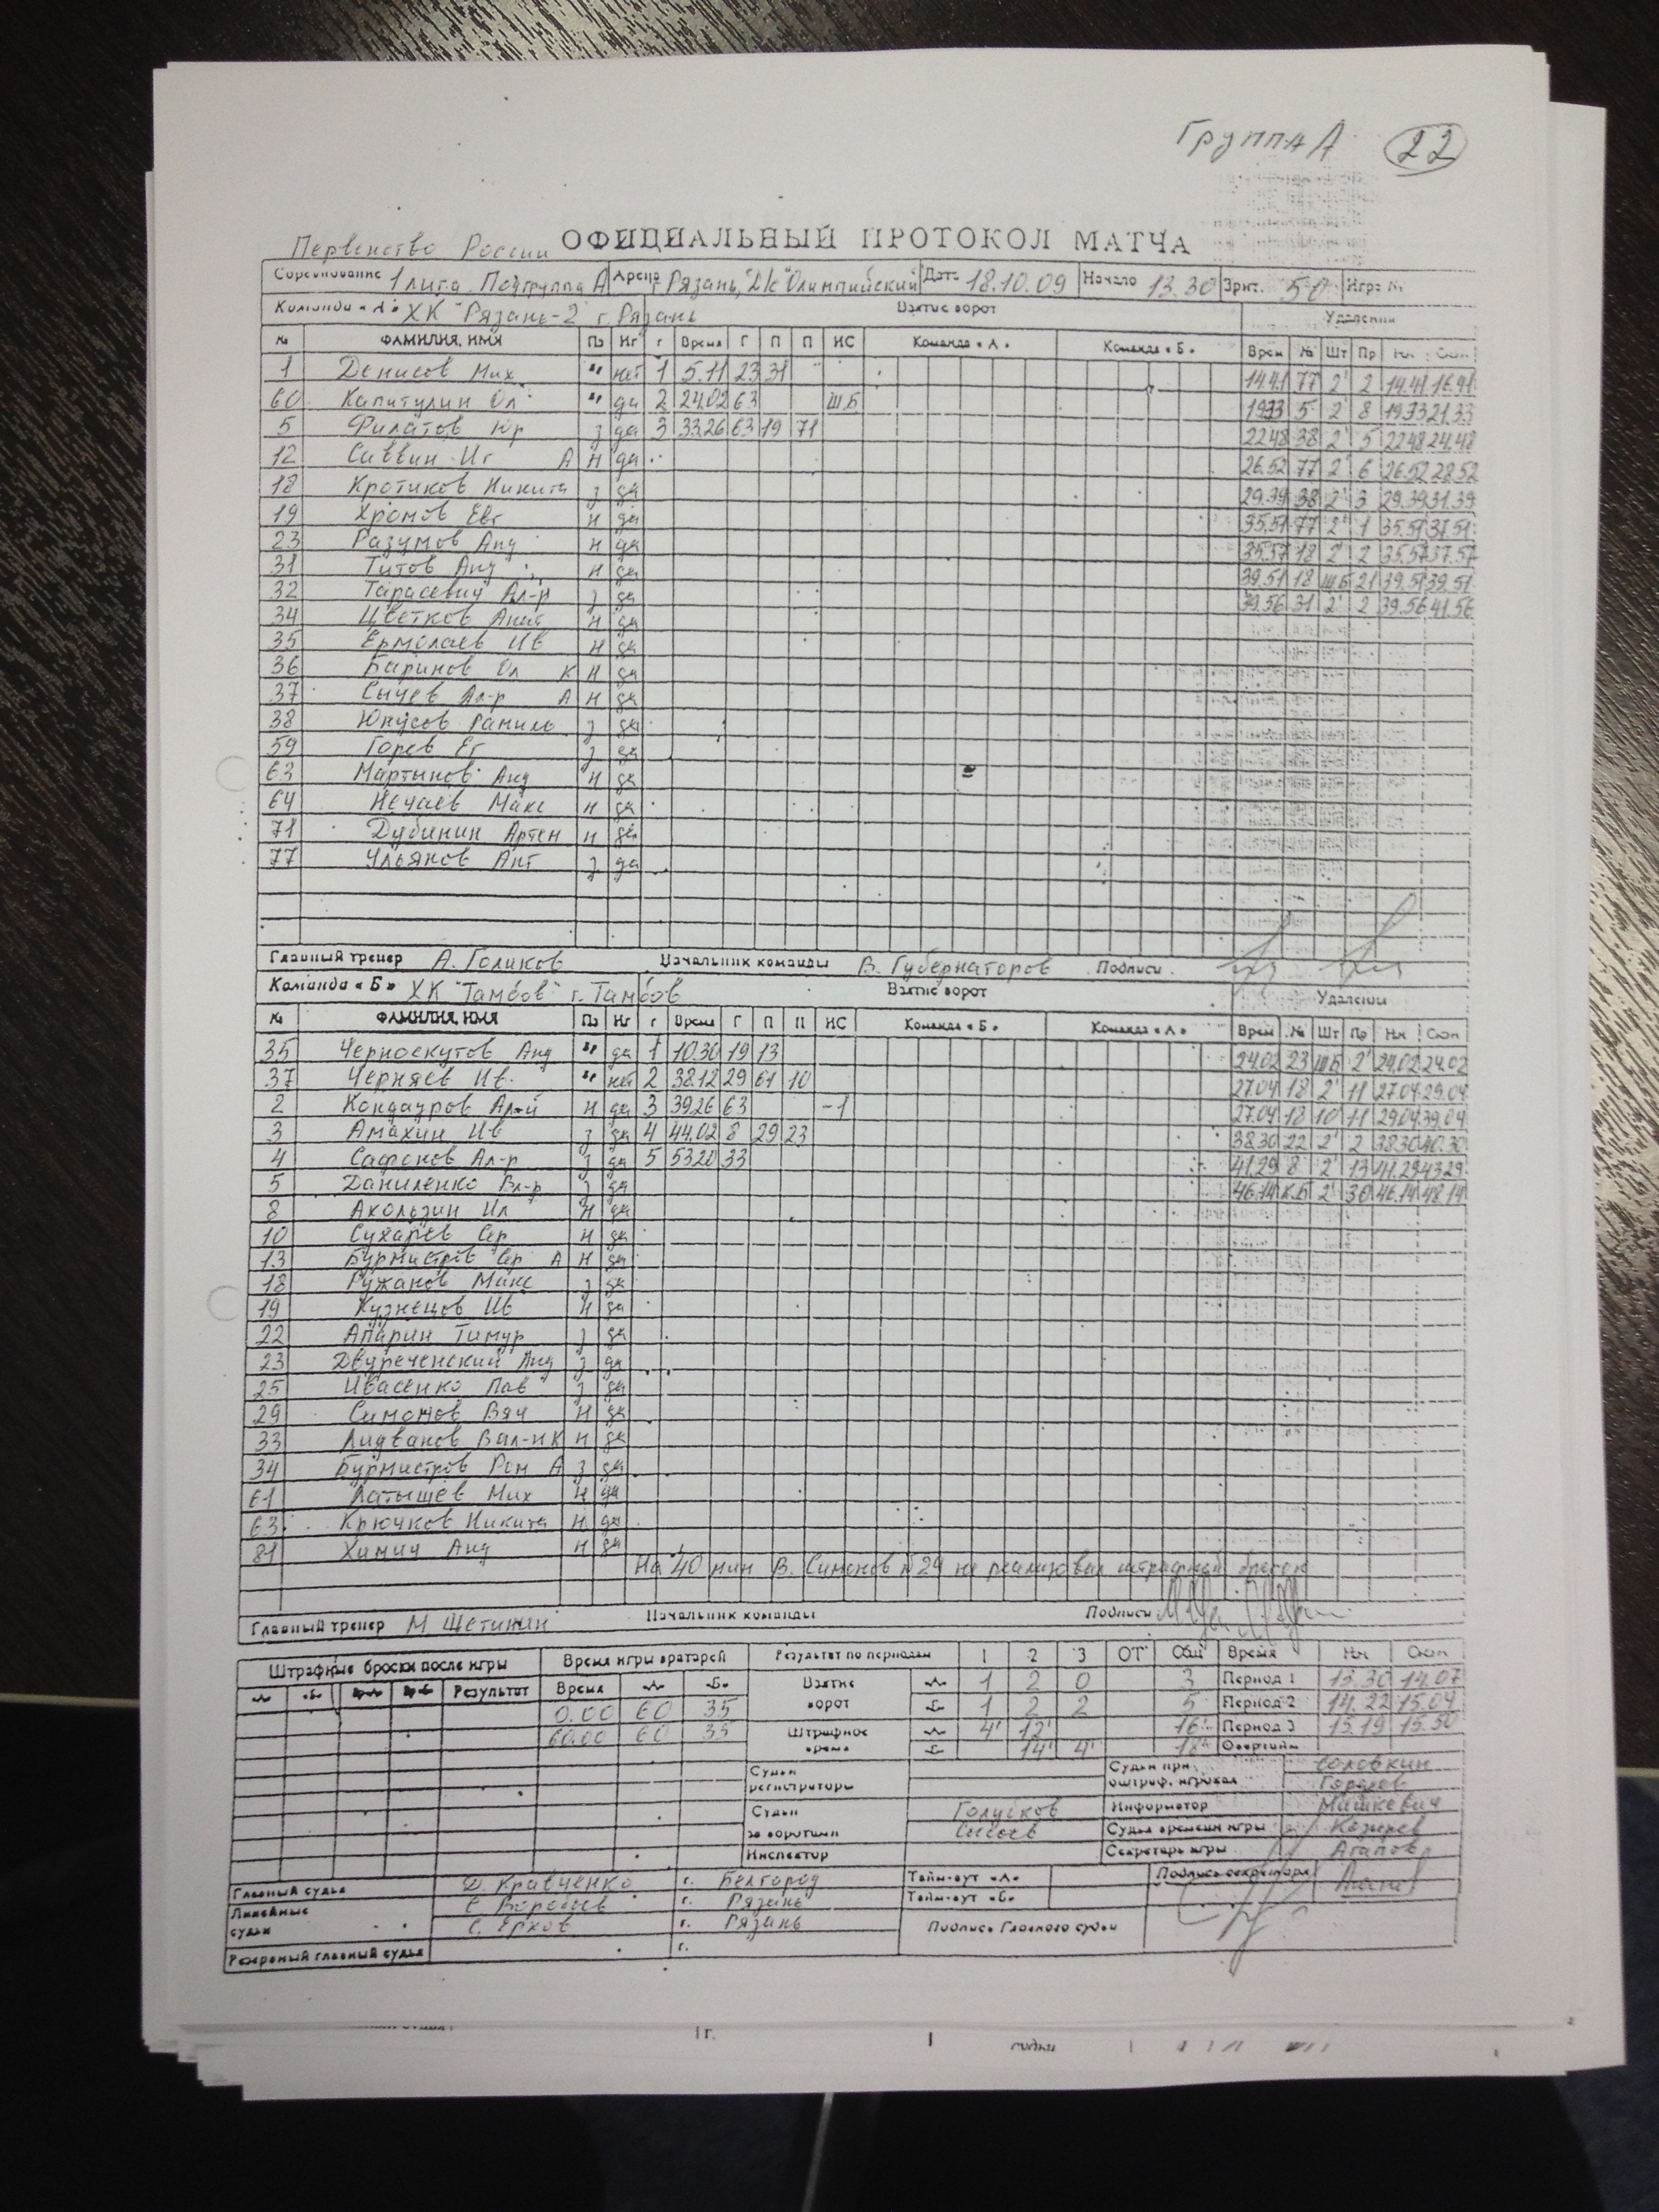 Группа А 22
Первенство России ОФИЦИАЛЬНЫЙ ПРОТОКОЛ МАТЧА
Соревнование 1 лига. Подгруппа А Арена г. Рязань, "ДК "Олимпийский" Дата 18.10.09 Начало 13.30 Зрит. 50 Игра №
Команда «А» ХК "Рязань-2" г. Рязань Взятие ворот Удаления
№ ФАМИЛИЯ, ИМЯ Пз Нг Г Время Г П П ИС Команда «А» Команда «Б» Врем № Шт Пр Нч Окон
1 Денисов Мих " нет 1 5.11 23 31 14.41 77 2' 2 14.41 16.41
60 Капитулин Ол " да 2 24.02 63 ШБ 19.33 5 2' 8 19.33 21.33
5 Филатов Юр з да 3 33.26 63 19 71 22.48 38 2' 5 22.48 24.48
12 Саввин Иг А н да 26.52 77 2' 6 26.52 28.52
18 Кротиков Никита з да 29.39 38 2' 3 29.39 31.39
19 Хромов Евг н да 35.51 77 2' 1 35.51 37.51
23 Разумов Анд н да 35.57 18 2' 2 35.57 37.57
31 Титов Анд н да 39.51 18 ШБ 21 39.51 39.51
32 Тарасевич Ал-р з да 39.56 31 2' 2 39.56 41.56
34 Цветков н да
35 Ермолаев Ив н да
36 Баринов Ол К н да
37 Сычев Ал-р А н да
38 Юнусов Рамиль з да
59 Горев Ег з да
63 Мартынов Анд н да
64 Нечаев Макс н да
71 Дубинин Артем н да
77 Ульянов Ант з да
Главный тренер А. Голиков Начальник команды В. Губернаторов Подписи
Команда «Б» ХК "Тамбов" г. Тамбов Взятие ворот Удаления
№ ФАМИЛИЯ, ИМЯ Пз Нг Г Время Г П П ИС Команда «Б» Команда «А» Врем № Шт Пр Нч Окон
35 Черноскутов Анд " да 1 10.30 19 13 24.02 23 ШБ 2' 24.02 24.02
37 Черняев Ив. " нет 2 38.12 29 61 10 27.04 18 2' 11 27.04 29.04
2 Кондауров Ал-й н да 3 39.26 63 -1 27.04 18 10' 11 29.04 39.04
3 Амахин Ив з да 4 44.02 8 29 23 38.30 22 2' 2 38.30 40.30
4 Сафонов Ал-р з да 5 53.20 33 41.29 8 2' 13 41.29 43.29
5 Даниленко Вл-р з да 46.14 К.Б 2' 30 46.14 48.14
8 Акользин Ил н да
10 Сухарев Сер н да
13 Бурмистров Сер А н да
18 Ружанов Макс з да
19 Кузнецов Ив н да
22 Апарин Тимур з да
23 Двуреченский Анд з да
25 Ивасенко Пав з да
29 Симонов Вяч н да
33 Лидванов Вал-н К н да
34 Бурмистров Ром А з да
61 Латышев Мих н да
63 Крючков Никита н да
81 Химич Анд н да
На 40 мин В. Симонов №29 не реализовал штрафной бросок
Главный тренер М. Щетинин Начальник команды Подписи
Штрафные броски после игры Время игры вратарей Результат по периодам 1 2 3 ОТ Общ Время Нч Окон
«А» «Б» Результат Время «А» «Б» Взятие «А» 1 2 0 3 Период 1 13.30 14.07
0.00 60 35 ворот «Б» 1 2 2 5 Период 2 14.22 15.04
60.00 60 35 Штрафное «А» 4' 12' 16' Период 3 15.19 15.50
время «Б» 14' 4' 18' Овертайм
Судьи регистраторы Судьи при оштраф. игроках Соловкин
Судьи за воротами Голусков Информатор Машкевич
Сысоев Судья времени игры Козырев
Инспектор Секретарь игры Агапов
Главный судья Д. Кравченко г. Белгород Тайм-аут «А» Подпись секретаря
Линейные судьи С. Воробьев г. Рязань Тайм-аут «Б»
С. Ерхов г. Рязань Подпись Главного судьи
Резервный главный судья г.